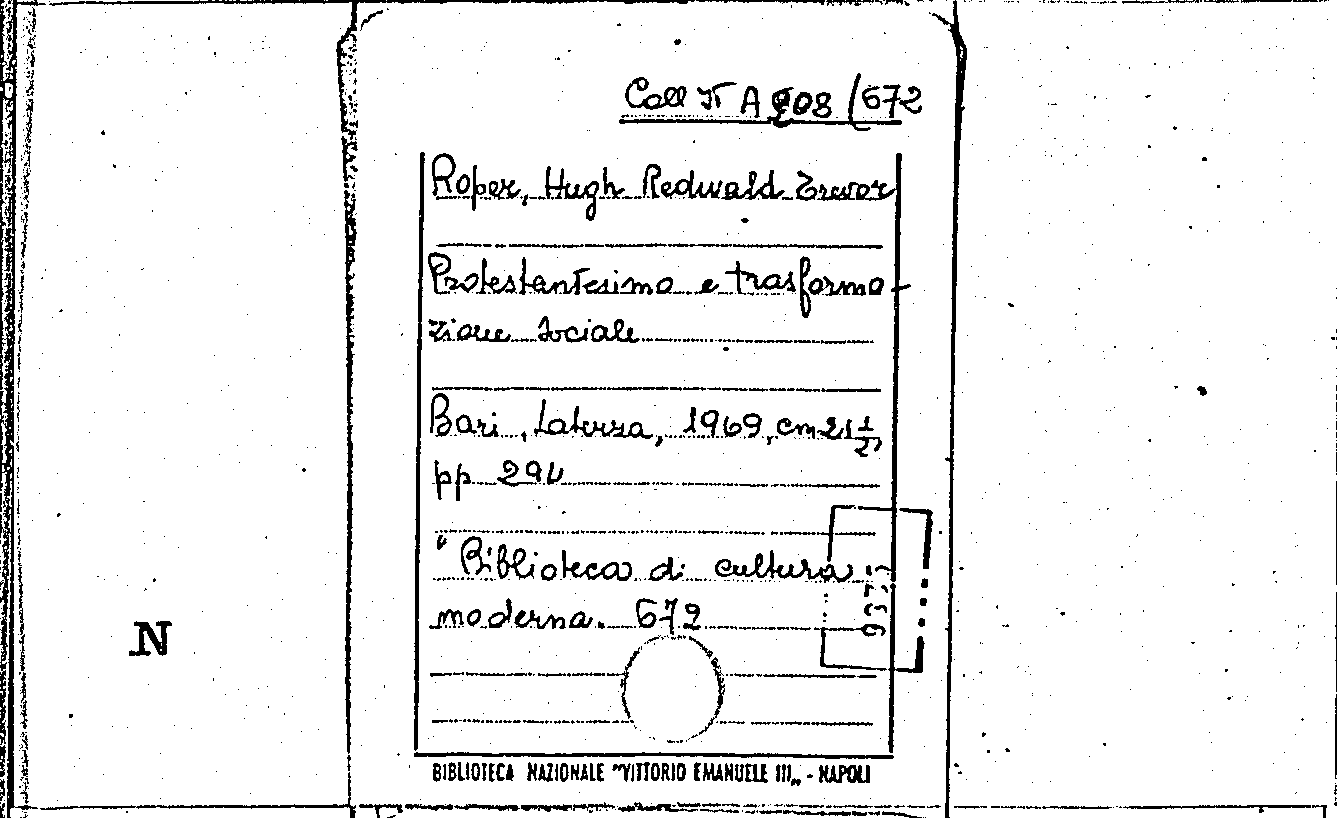 Coll It A 908 (672
Roper, Hugh Redwald Trevor
Protestantesimo e trasforma-
zione sociale
Bari, Laterza, 1969, cm 21 1/2,
pp 294
"Biblioteca di cultura
moderna. 672
N
BIBLIOTECA NAZIONALE "VITTORIO EMANUELE III„ - NAPOLI